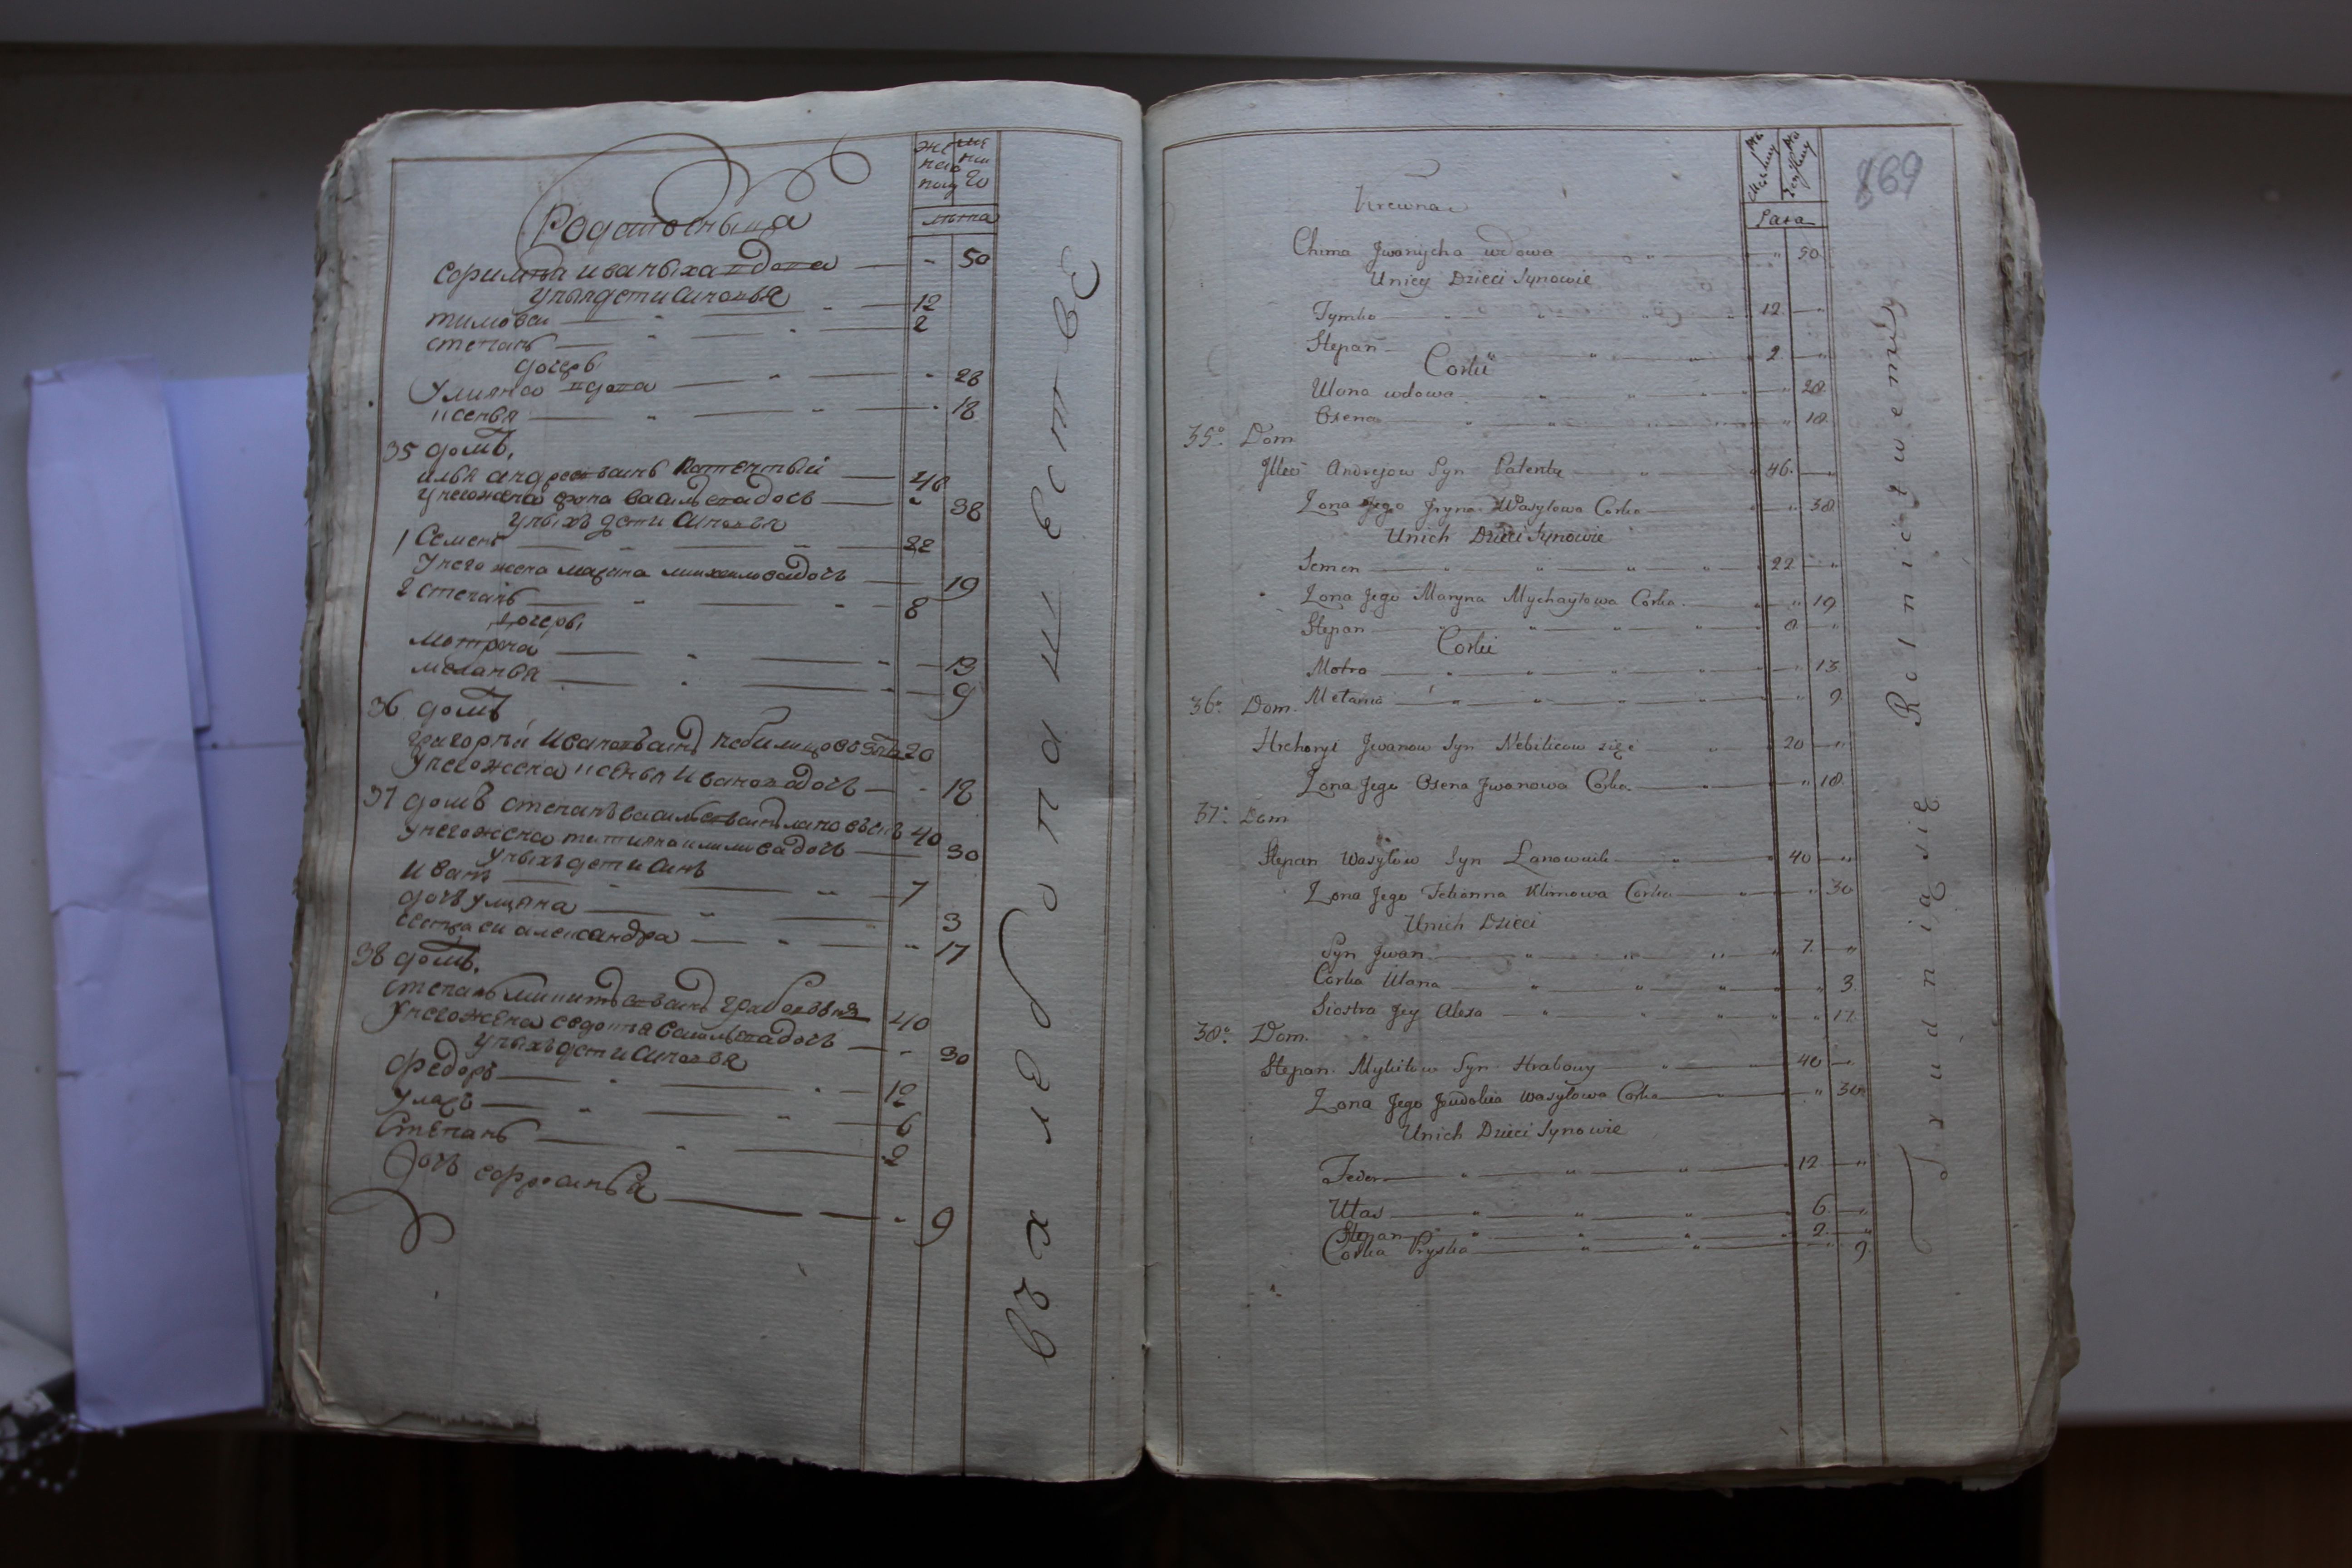 лѣта
Родственница
софимья иваныха вдова — " 50
у ныя дети сыновья
тимовей — 12
степанъ — 2
дочерь
Улияна вдова — " 28
ксенья — " 18
35 домъ.
илья андреевъ сынъ Патентый — 46
у него жена ирина васильева дочь — " 38
у ныхъ дети сыновья
1 Семенъ — 22
У него жена марина михайлова дочь — 19
2 степанъ — 8
дочери
мотрона — 13
меланья — 9
36 домъ
григорей Ивановъ сынъ небилицовъ зять 20
У него жена ксенья Иванова дочь — " 18
37 домъ степанъ васильевъ сынъ лановъникъ 40
у него жена татияна климова дочь — 30
у ныхъ дети сынъ
Иванъ — 7
дочь улияна — 3
сестра ей александра — " 17
38 домъ.
степанъ микитовъ сынъ грабовый 40
У него жена евдотья васильева дочь — " 30
у ныхъ дети сыновья
Федоръ — 12
Уласъ — 6
Степанъ — 2
Дочь ефросинья — " 9
въ хлебопашестве
869
Krewna
Lata
Chima Jwanycha wdowa — " 50
Uniey Dzieci Synowie
Tymko — 12 — "
Stepan — 2 — "
Corki
Ulana wdowa — " 28
Oxena — " 18
35° Dom
Jlko Andrejow Syn Patenty — 46 — "
Zona Jego Jryna Wasylowa Corka — " 38
Unich Dzieci Synowie
Semen — 22 — "
Zona Jego Maryna Mychayłowa Corka — " 19
Stepan — 8 — "
Corki
Motra — " 13
36° Dom. Mełania — " 9
Hrehoryi Jwanow Syn Nebilicow zięć — 20 — "
Zona Jego Oxena Jwanowa Corka — " 18
37° Dom
Stepan Wasylow Syn Lanownik — 40 — "
Zona Jego Tetianna Klimowa Corka — " 30
Unich Dzieci
Syn Jwan — 7 — "
Corka Ulana — " 3
Siostra Jey Alexa — " 17
38° Dom.
Stepan Mykitow Syn Hrabowy — 40 — "
Zona Jego Jewdokia Wasylowa Corka — " 30
Unich Dzieci Synowie
Fedor — 12 — "
Ułas — 6 — "
Stepan — 2 — "
Corka Pryska — " 9
Trudnią się Rolnictwem